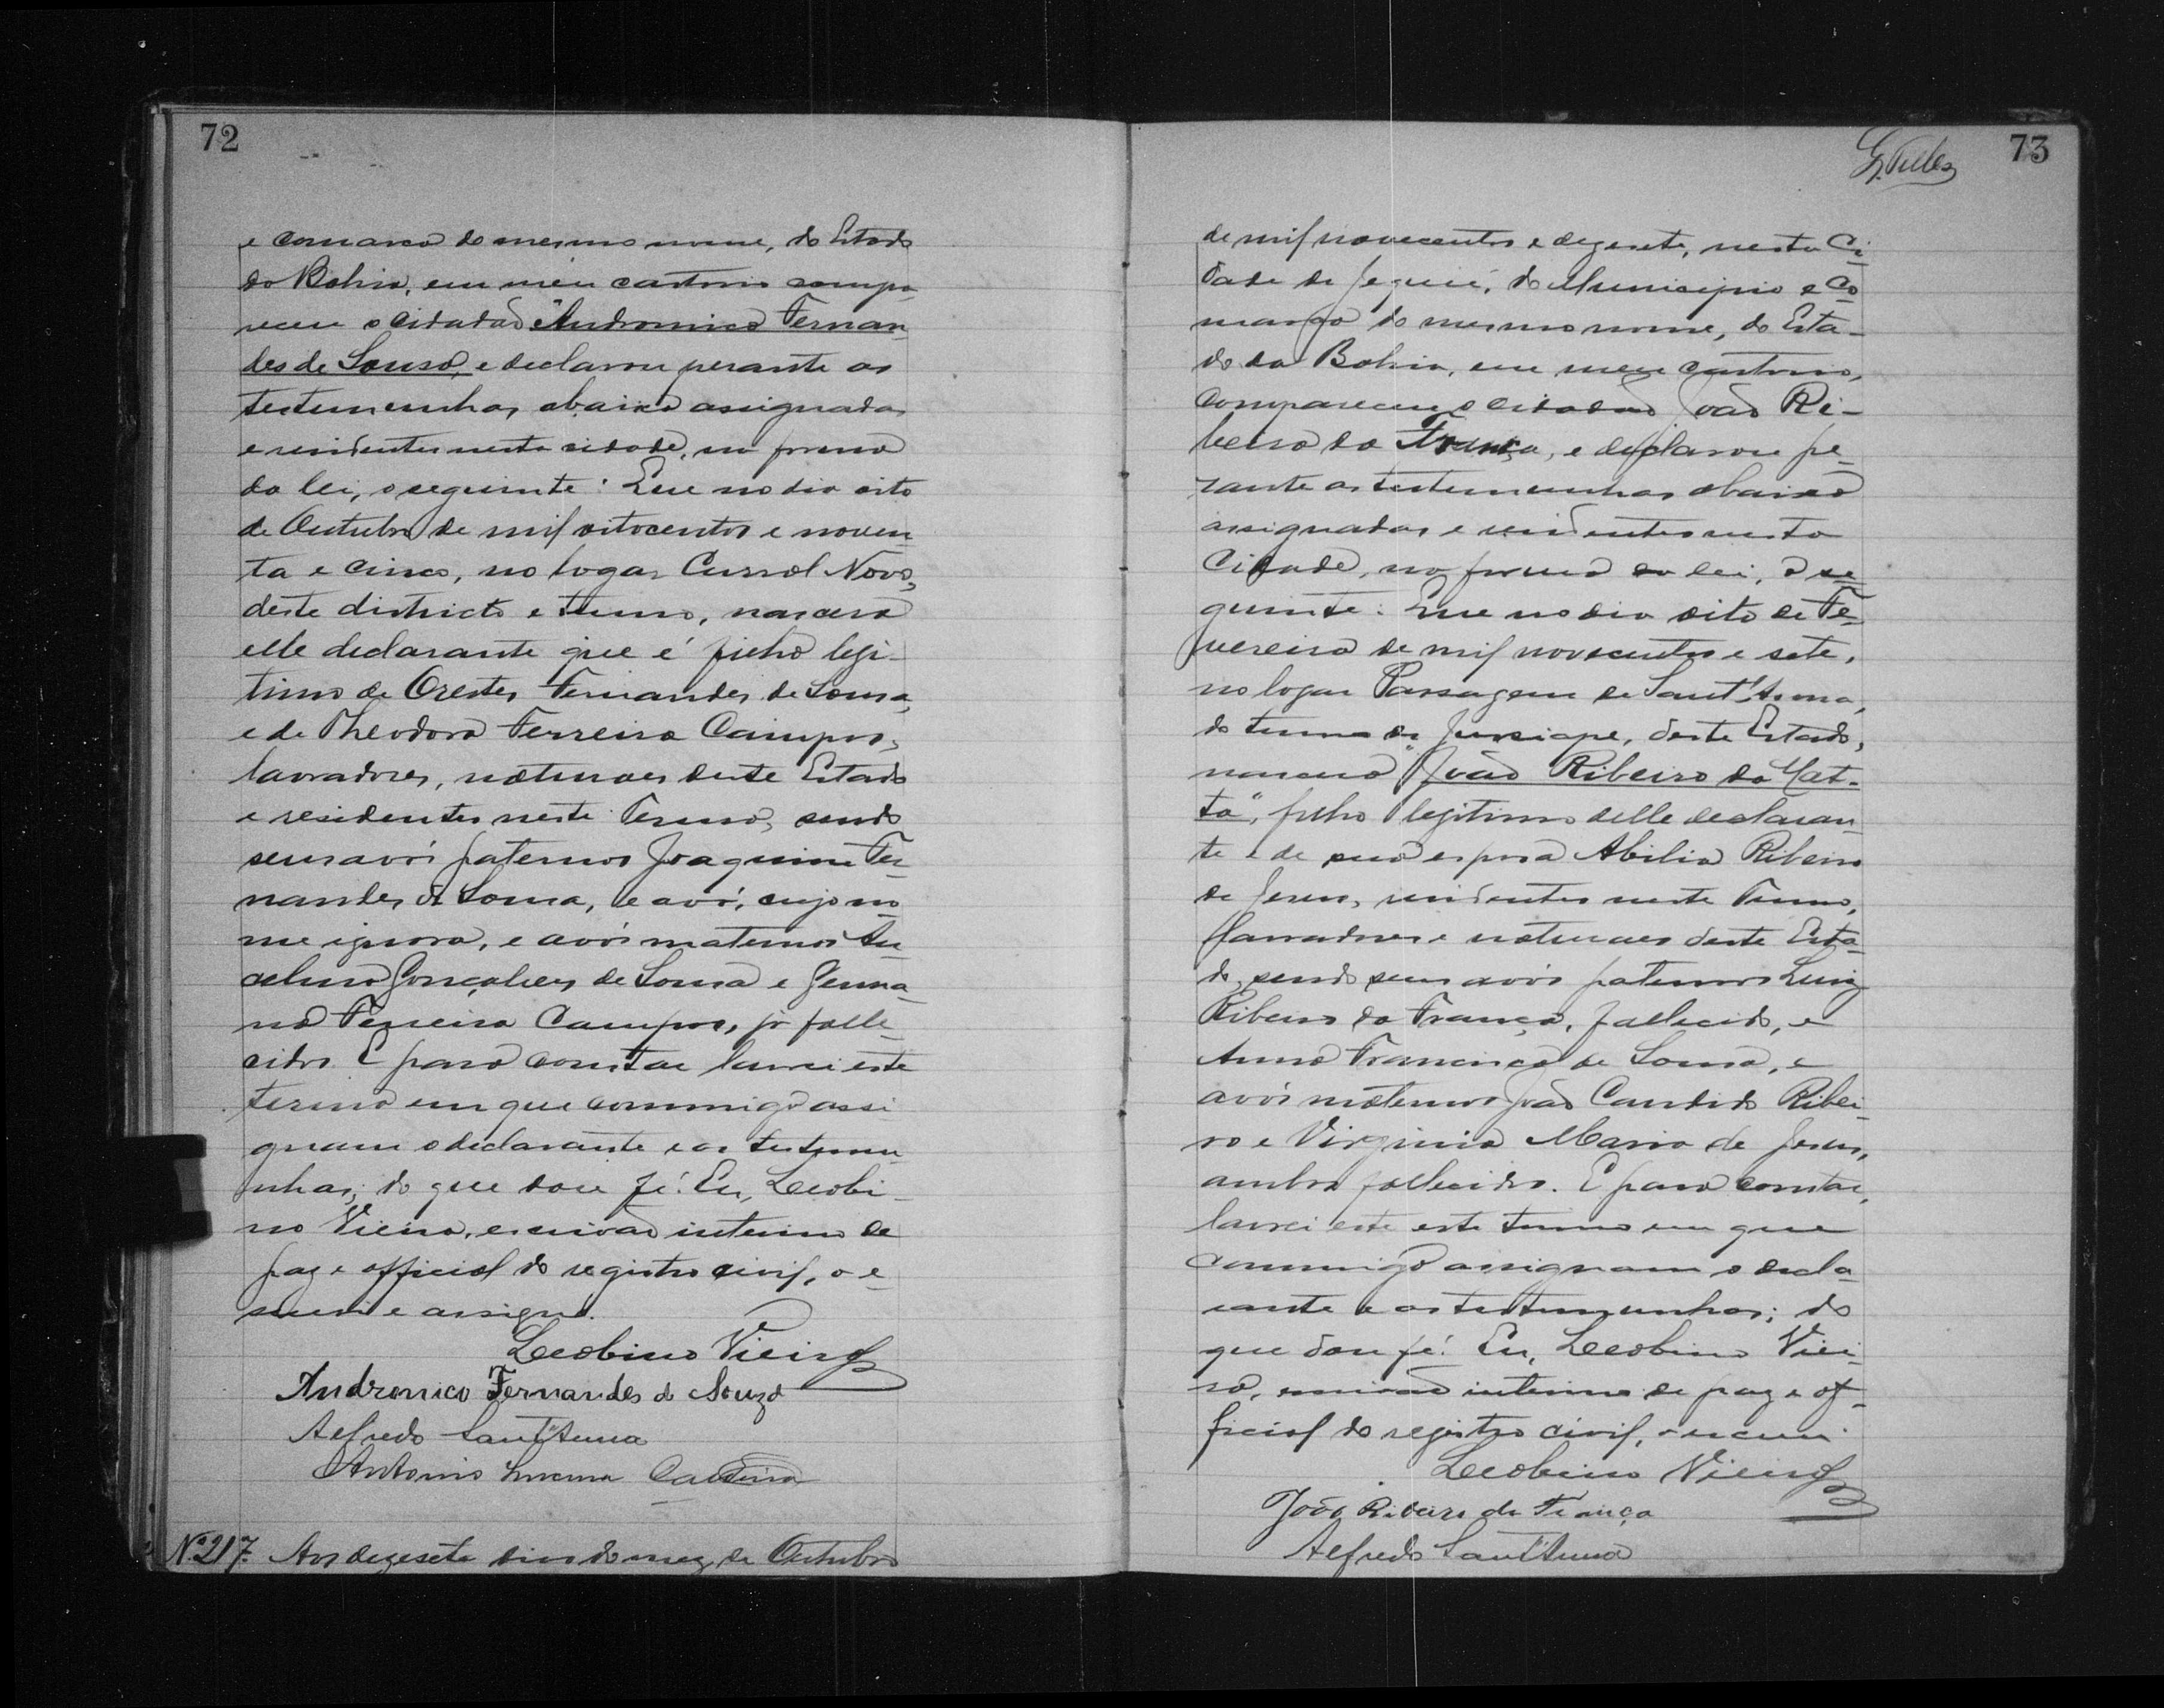 72
e comarca do mesmo nome, do Estado
da Bahia, em meu cartorio compa-
receu o cidadão Andronico Fernan-
des de Sousa, e declarou perante as
testemunhas abaixo assignadas
e residentes nesta cidade, na forma
da lei, o seguinte: Que no dia oito
de Outubro de mil oitocentos e noven-
ta e cinco, no logar Curral Novo,
deste districto e termo, nascera
elle declarante que é filho legi-
timo de Orestes Fernandes de Sousa,
e de Theodora Ferreira Campos,
lavradores, naturaes deste Estado
e residentes neste Termo, sendo
seus avós paternos Joaquim Fer-
nandes de Sousa, e avó, cujo no-
me ignora, e avós maternos
Gonçalves de Sousa e
Ferreira Campos, já falle-
cidos. E para constar lavrei este
termo em que commigo assi-
gnam o declarante e as testemu-
nhas; do que dou fé. Eu, Leobi-
no Vieira, escrivão interino de
paz e official do registro civil, o e-
screvi e assigno.
Leobino Vieira
Andronico Fernandes de Souza
Alfredo Sant'Anna
Antonio
Nº 217. Aos dezesete dias do mez de Outubro
73
de mil novecentos e dezesete, nesta Ci-
dade de Jequié, do Municipio e Co-
marca do mesmo nome, do Esta-
do da Bahia, em meu cartorio,
compareceu o cidadão João Ri-
beiro da França, e declarou pe-
rante as testemunhas abaixo
assignadas e residentes nesta
Cidade, na forma da lei, o se-
guinte: Que no dia oito de Fe-
vereiro de mil novecentos e sete,
no logar Passagem de Sant'Anna,
do termo de Jussiape, deste Estado,
nascera "João Ribeiro da Mat-
ta", filho legitimo delle declaran-
te e de sua esposa Abilia Ribeiro
de Jesus, residentes neste Termo,
lavradores e naturaes deste Esta-
do, sendo seus avós paternos Luiz
Ribeiro da França, fallecido, e
Anna Francisca de Sousa, e
avós maternos João Candido Ribei-
ro e Virginia Maria de Jesus,
ambos fallecidos. E para constar,
lavrei este este termo em que
commigo assignam o decla-
rante e as testemunhas; do
que dou fé. Eu, Leobino Viei-
ra, escrivão interino de paz e of-
ficial do registro civil, o escrevi.
Leobino Vieira
João Ribeiro da França
Alfredo Sant'Anna